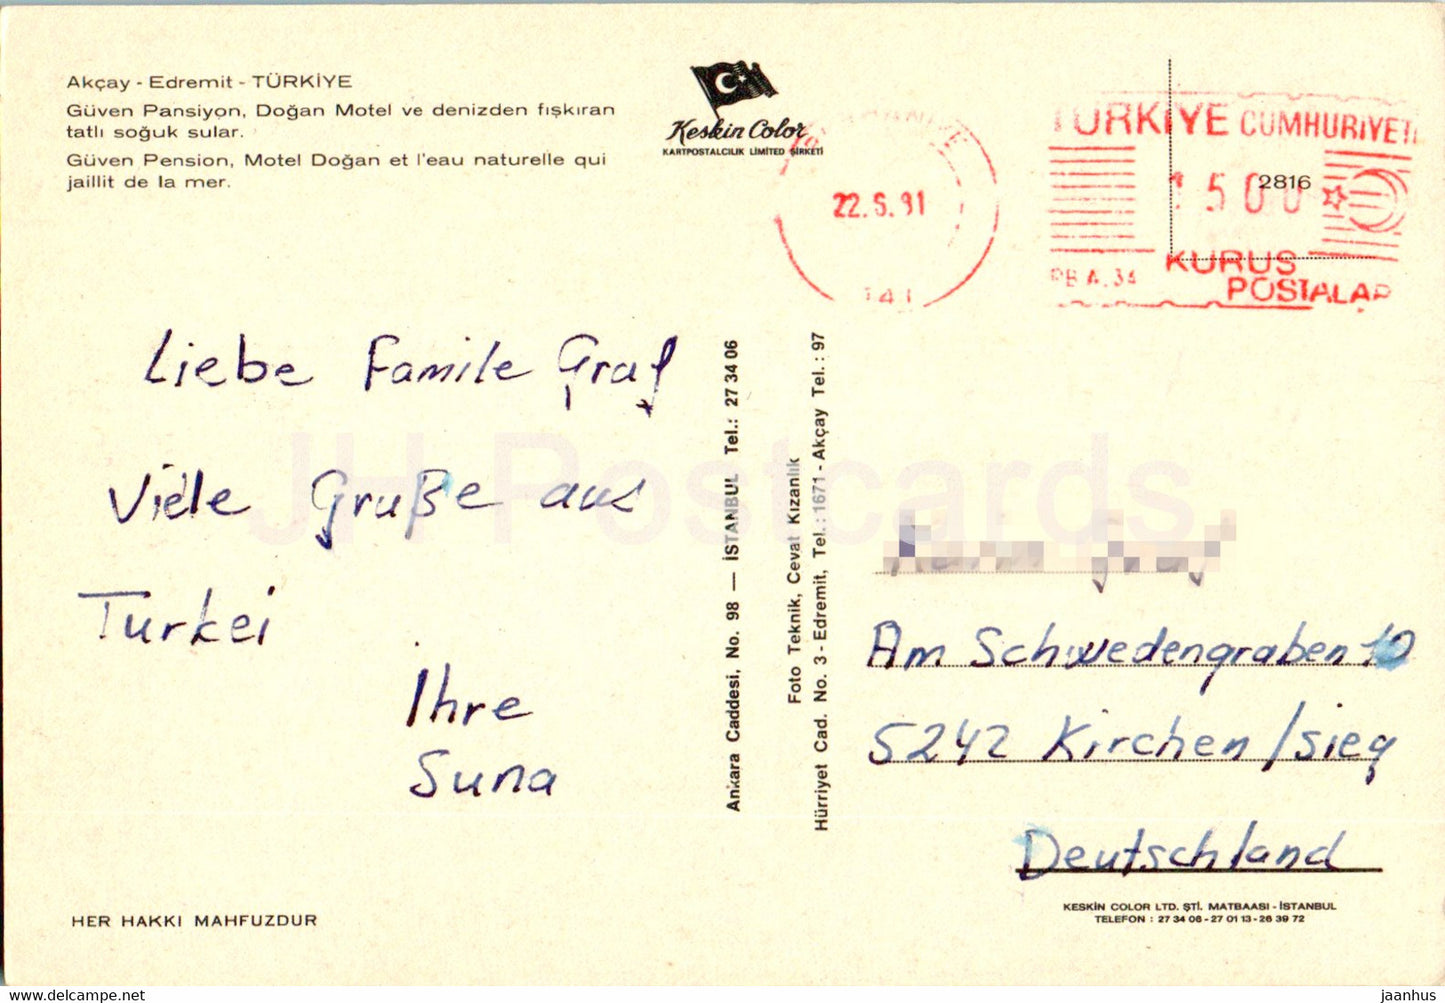 Akçay - Edremit - TÜRKİYE
Güven Pansiyon, Doğan Motel ve denizden fışkıran
tatlı soğuk sular.
Güven Pension, Motel Doğan et l'eau naturelle qui
jaillit de la mer.
Keskin Color
KARTPOSTALCILIK LIMITED ŞIRKETI
22.6.91
TÜRKİYE CUMHURİYETİ
1500
2816
PB A.34
KURUŞ
POSTALAR
Liebe Familе Graf
Viele Gruße aus
Turkei
Ihre
Suna
Ankara Caddesi, No. 98 — İSTANBUL Tel.: 27 34 06
Foto Teknik, Cevat Kızanlık
Hürriyet Cad. No. 3 - Edremit, Tel.: 1671 - Akçay Tel. : 97
Am Schwedengraben 10
5242 Kirchen/sieg
Deutschland
HER HAKKI MAHFUZDUR
KESKİN COLOR LTD. ŞTİ. MATBAASI - İSTANBUL
TELEFON : 27 34 06 - 27 01 13 - 26 39 72
JH Postcards
https://jhpostcards.com/net
jaanhus